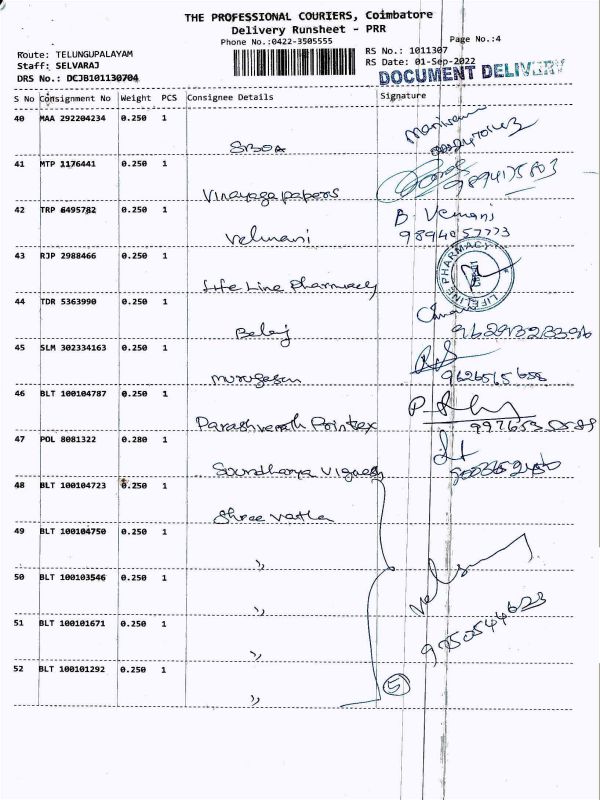 THE PROFESSIONAL COURIERS, Coimbatore
Delivery Runsheet - PRR
Phone No.:0422-3505555
Page No.:4
Route: TELUNGUPALAYAM
RS No.: 1011307
Staff: SELVARAJ
RS Date: 01-Sep-2022
DRS No.: DCJB101130704
DOCUMENT DELIVERY
S No Consignment No Weight PCS Consignee Details Signature
40 MAA 292204234 0.250 1
SBOA
41 MTP 1176441 0.250 1
Vinayaga papers 9894175803
42 TRP 6495782 0.250 1
B. Vemani
Velmani 9894057773
43 RJP 2988466 0.250 1
LIFELINE PHARMACY
Life Line Pharmacy
44 TDR 5363990 0.250 1
Balaj
45 SLM 302334163 0.250 1
murugesan
46 BLT 100104787 0.250 1
47 POL 8081322 0.280 1
Soundharya Vignesh
48 BLT 100104723 0.250 1
Shree Vatla
49 BLT 100104750 0.250 1
"
50 BLT 100103546 0.250 1
"
51 BLT 100101671 0.250 1
" 9750544623
52 BLT 100101292 0.250 1
" 5